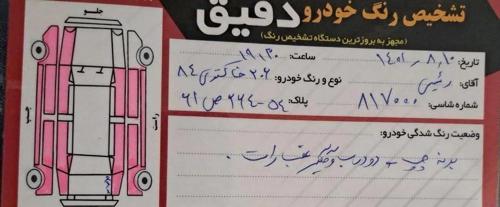 تشخیص رنگ خودرو دقیق
(مجهز به بروزترین دستگاه تشخیص رنگ)
تاریخ: ۱۴۰۱ ر ۸ ر ۱۰ ساعت: ۱۹٫۳۰
آقای: رئیسی نوع و رنگ خودرو: ۲۰۶ خاکستری ۸۴
شماره شاسی: ۸۱۷۰۰۰ پلاک: ۵۴-۲۶۴ص۶۱
وضعیت رنگ شدگی خودرو:
بدنه چپ + دو درب و گلگیر عقب راست.
جلو
چپ
راست